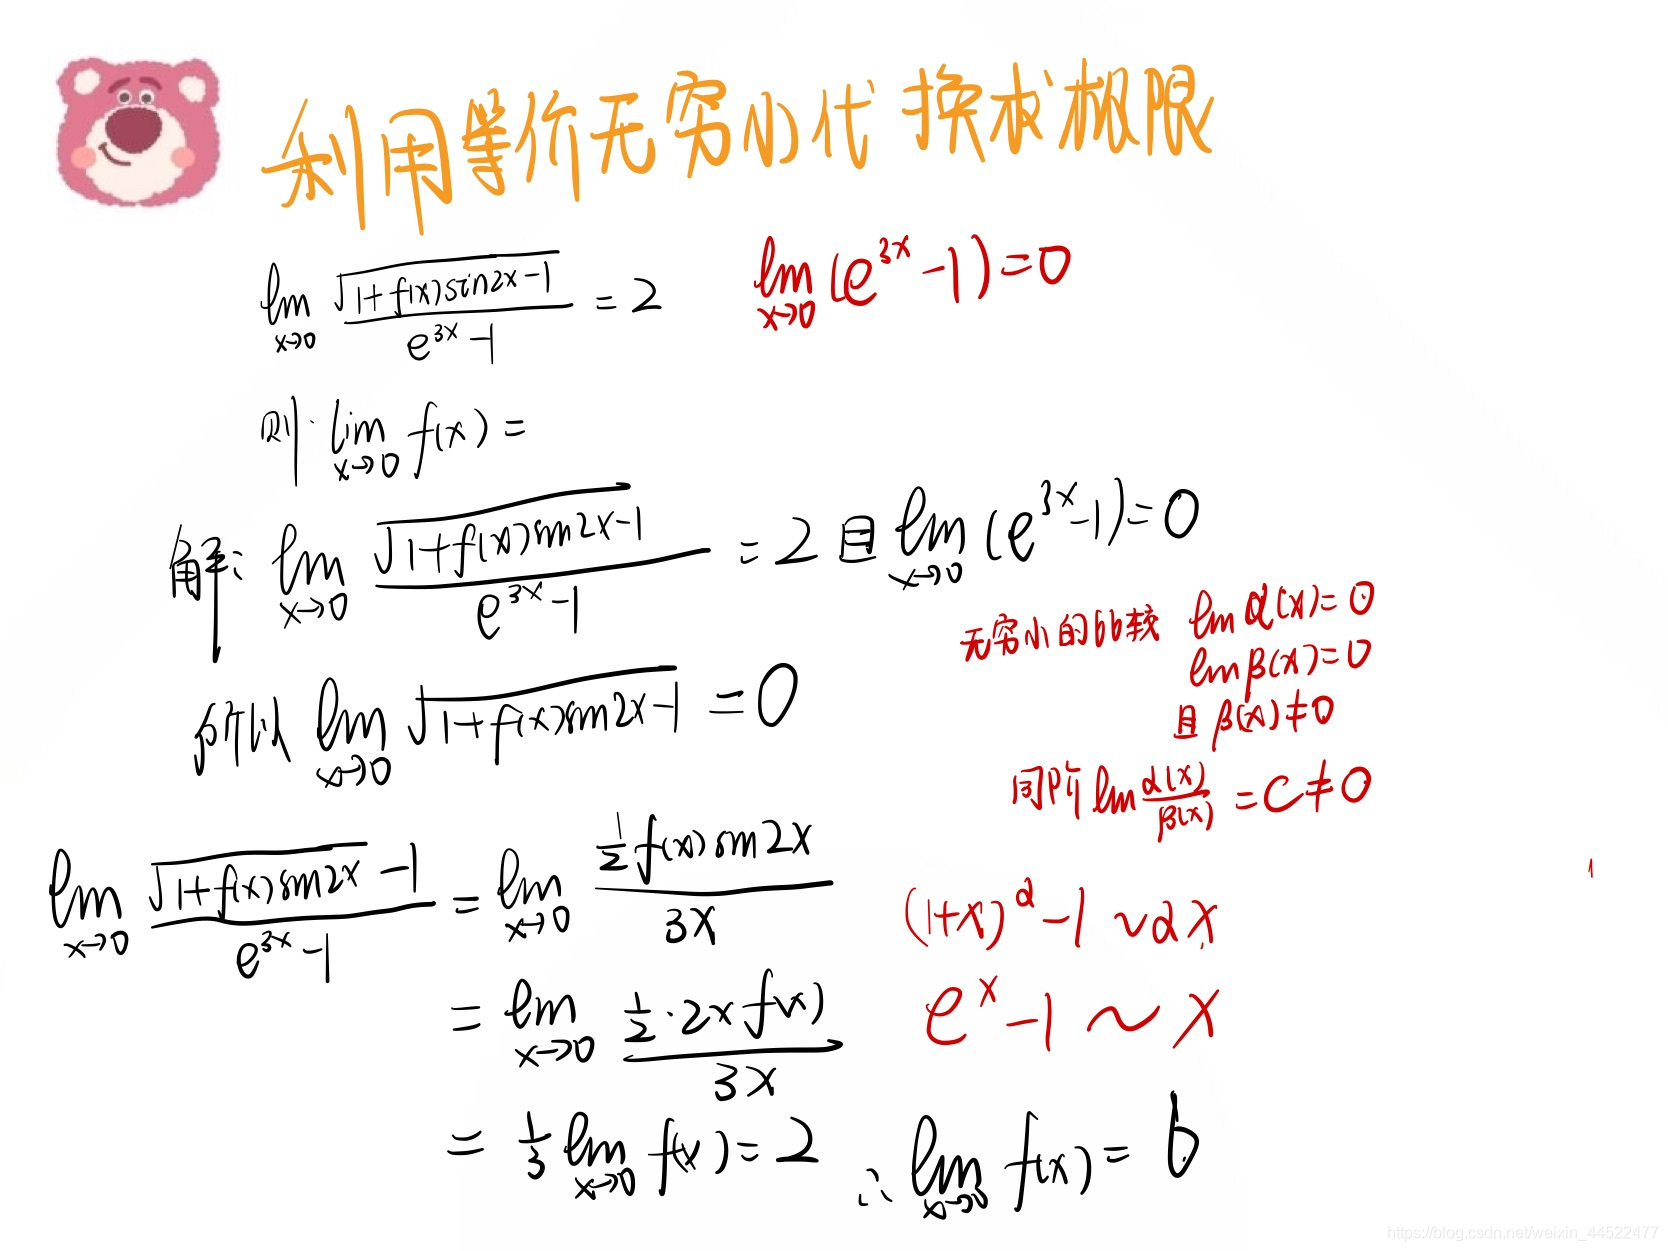 利用等价无穷小代换求极限
lim x→0 √(1+f(x)sin2x-1) / (e^{3x}-1) = 2
lim x→0 (e^{3x}-1)=0
则: lim x→0 f(x) =
解: lim x→0 √(1+f(x)sin2x-1) / (e^{3x}-1) = 2 且 lim x→0 (e^{3x}-1)=0
无穷小的比较 lim α(x)=0
lim β(x)=0
且 β(x)≠0
所以 lim x→0 √(1+f(x)sin2x-1) = 0
同阶 lim α(x)/β(x) = C≠0
lim x→0 (√(1+f(x)sin2x) -1) / (e^{3x}-1) = lim x→0 (1/2 f(x) sin2x) / 3x
(1+x)^α -1 ~ αx
= lim x→0 (1/2 · 2x f(x)) / 3x
e^x -1 ~ x
= 1/3 lim x→0 f(x) = 2 ∴ lim x→0 f(x) = 6
1
https://blog.csdn.net/weixin_44522477